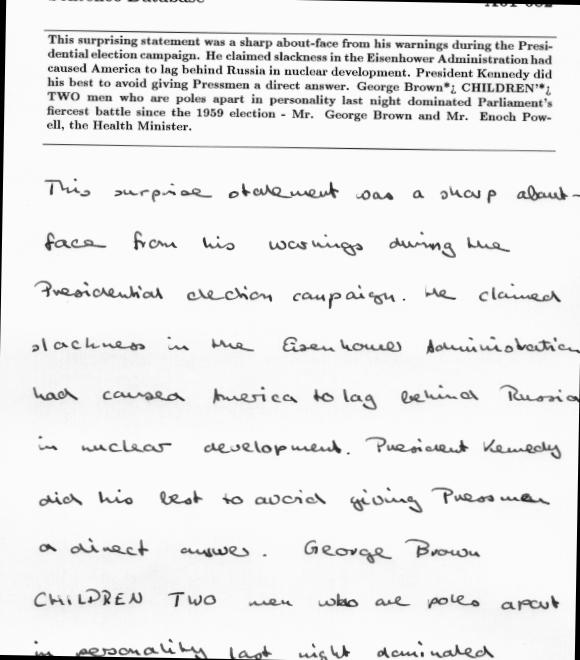 Sentence Database
This surprising statement was a sharp about-face from his warnings during the Presi-
dential election campaign. He claimed slackness in the Eisenhower Administration had
caused America to lag behind Russia in nuclear development. President Kennedy did
his best to avoid giving Pressmen a direct answer. George Brown*¿ CHILDREN'*¿
TWO men who are poles apart in personality last night dominated Parliament's
fiercest battle since the 1959 election - Mr. George Brown and Mr. Enoch Pow-
ell, the Health Minister.
This surprise statement was a sharp about-
face from his warnings during the
Presidential election campaign. He claimed
slackness in the Eisenhower Administration
had caused America to lag behind Russia
in nuclear development. President Kennedy
did his best to avoid giving Pressmen
a direct answer. George Brown
CHILDREN TWO men who are poles apart
in personality last night dominated